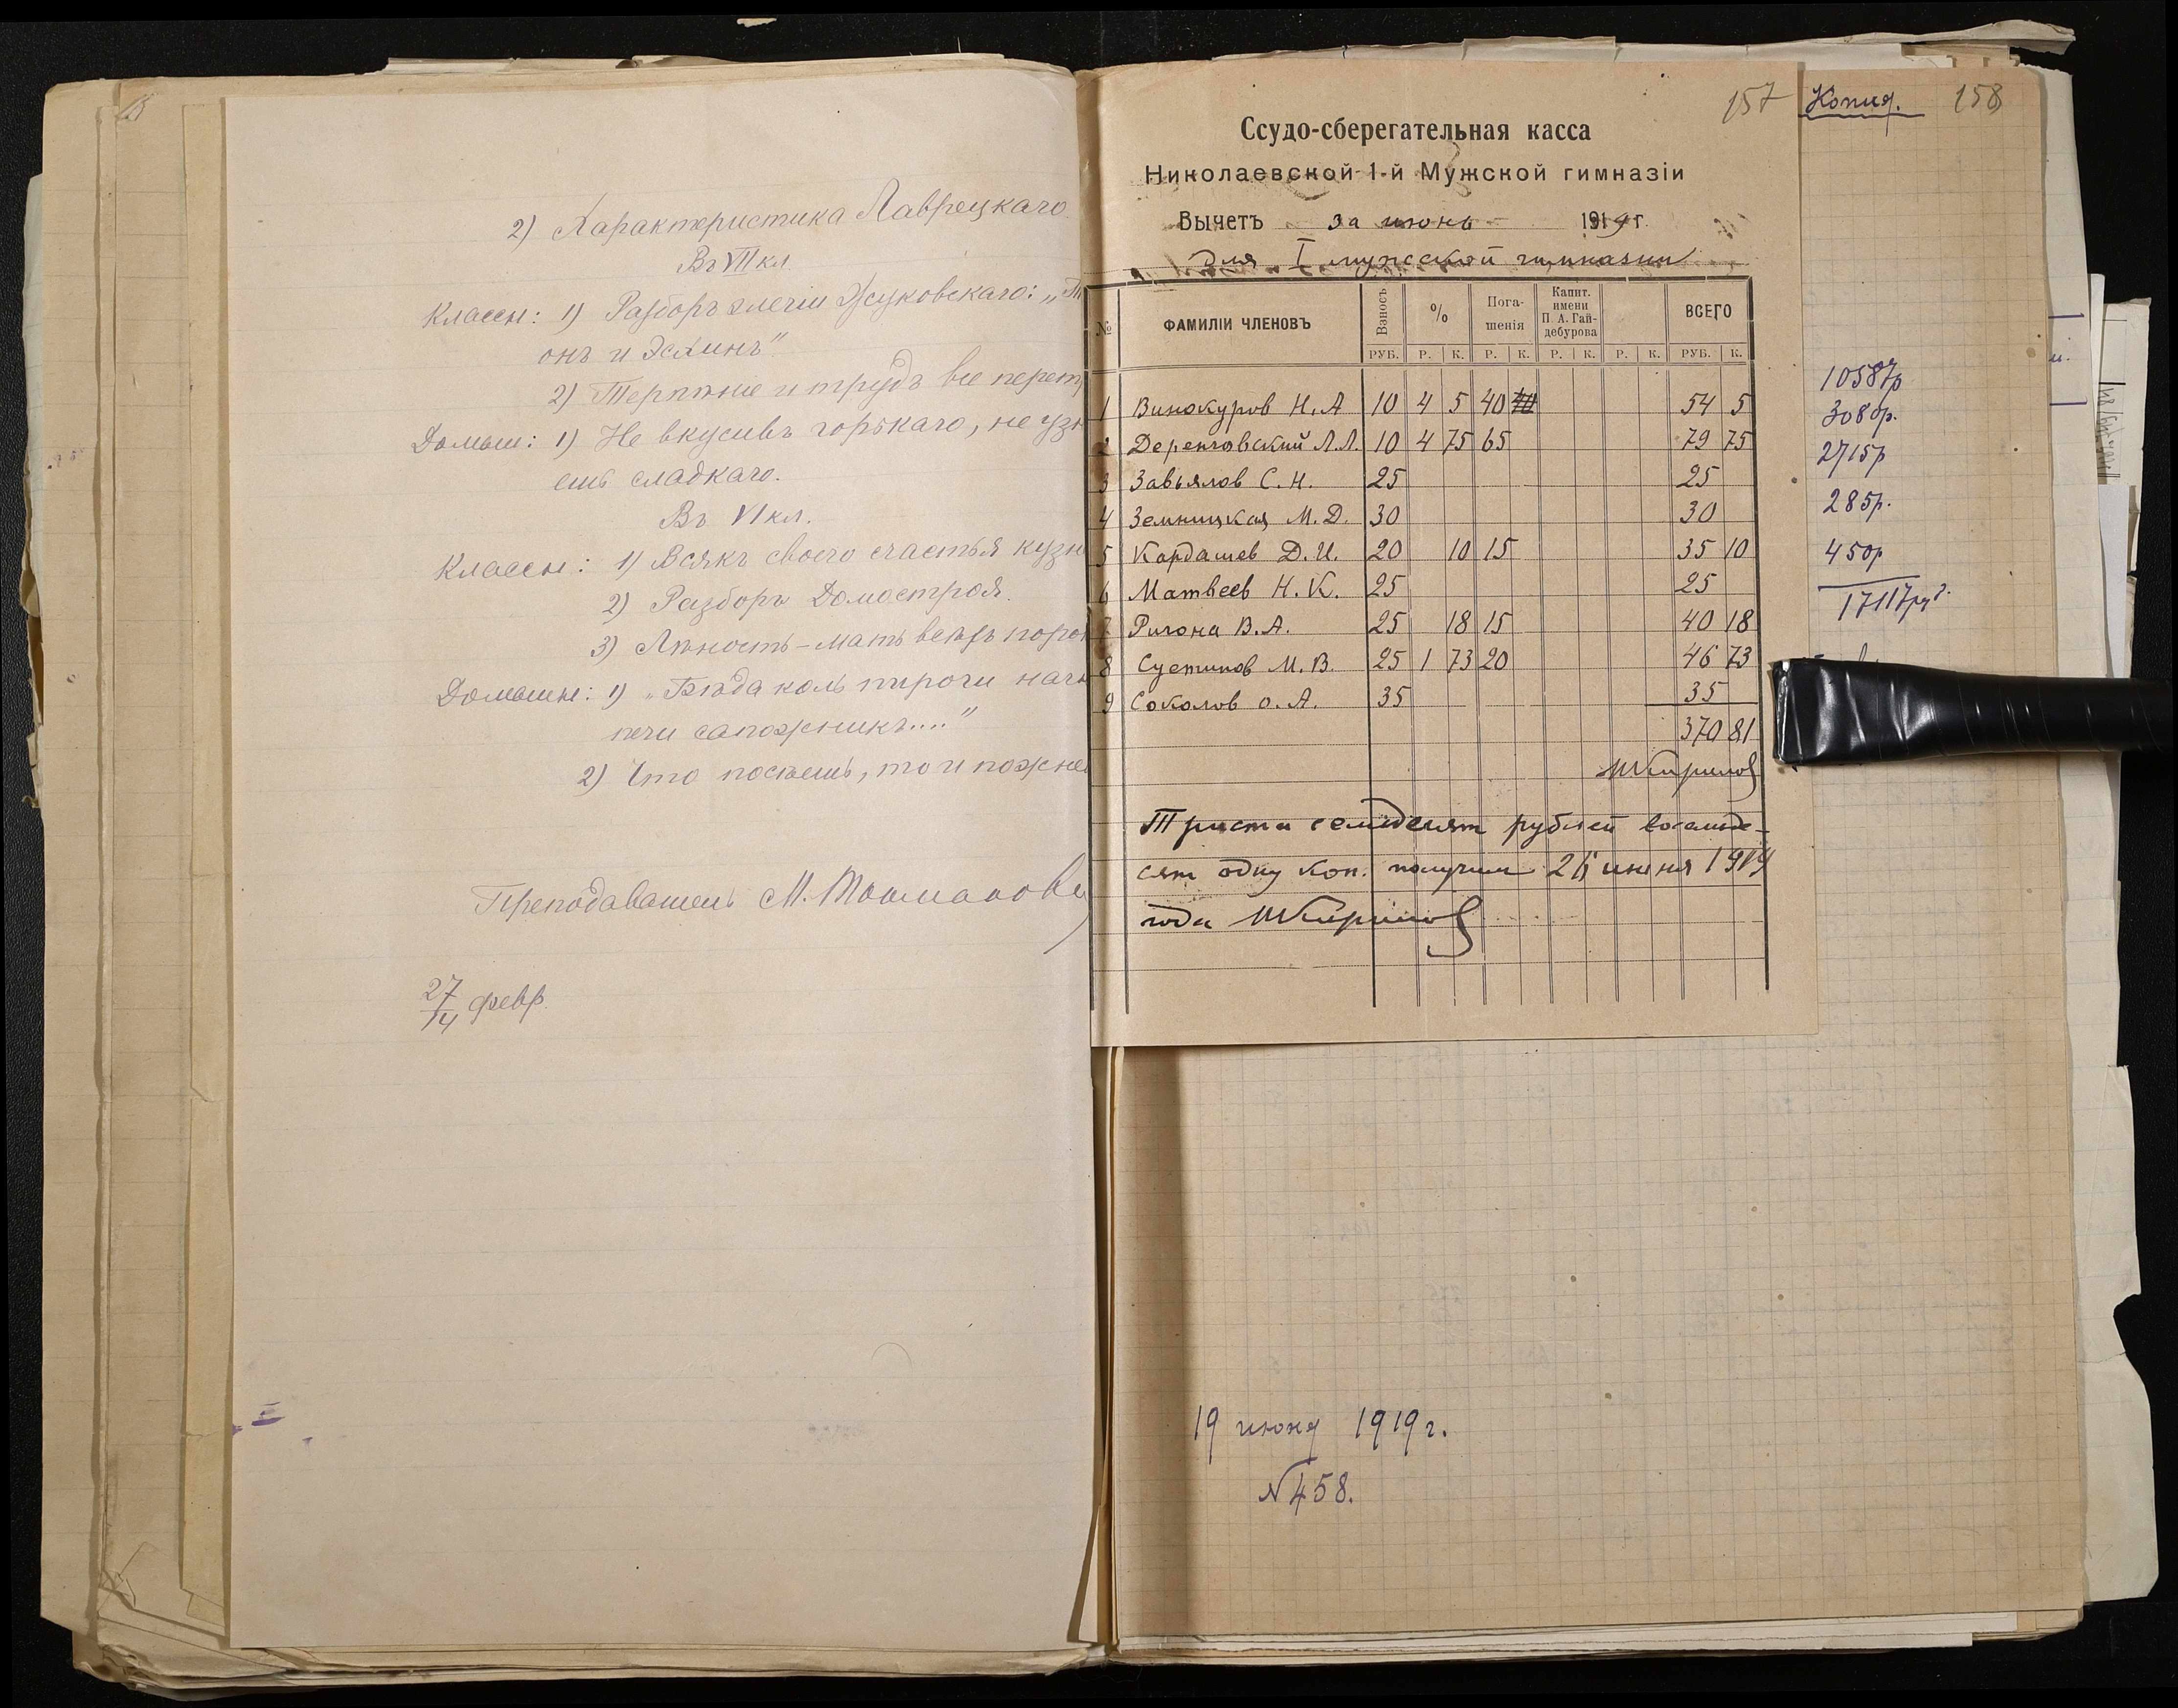 2) Характеристика Лаврецкаго
Въ VII кл.
Классн: 1) Разборъ элегіи Жуковскаго: „Т
онъ и Эсхинъ"
2) Терпѣніе и трудъ все перет
Домаш: 1) Не вкусивъ горькаго, не узн
ешь сладкаго.
Въ VI кл.
Классн: 1) Всякъ своего счастья кузн
2) Разборъ Домостроя.
3) Лѣность – мать всѣхъ порок
Домашн: 1) „Бѣда коль пироги начн
печи сапожникъ...."
2) Что посѣешь, то и пожне
Преподаватель М.
27/14 февр.
157
Ссудо-сберегательная касса
Николаевской 1-й Мужской гимназіи
Вычетъ за июнь 1919 г.
для I мужской гимназии
№ ФАМИЛІИ ЧЛЕНОВЪ Взносъ % Пога-шенія Капит. имени П. А. Гай-дебурова ВСЕГО
РУБ. Р. К. Р. К. Р. К. Р. К. РУБ. К.
1 Винокуров Н. А 10 4 5 40 54 5
2 Деренговский Л.Л. 10 4 75 65 79 75
3 Завьялов С. Н. 25 25
4 Земницкая М. Д. 30 30
5 Кардашев Д. И. 20 10 15 35 10
6 Матвеев Н. К. 25 25
7 Ригона В. А. 25 18 15 40 18
8 Суетинов М. В. 25 1 73 20 46 73
9 Соколов О. А. 35 35
370 81
Триста семьдесят рублей восемьде-
сят одну коп. получил 26 июня 1919
года
Копия. 158
10587р
3080р.
2715р
285р.
450р
17117руб.
19 июня 1919 г.
№ 458.